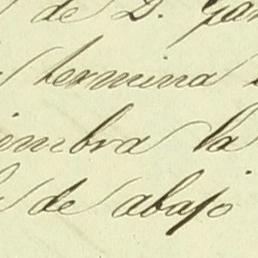 de D. Gar
termina
imbra la
de abajo